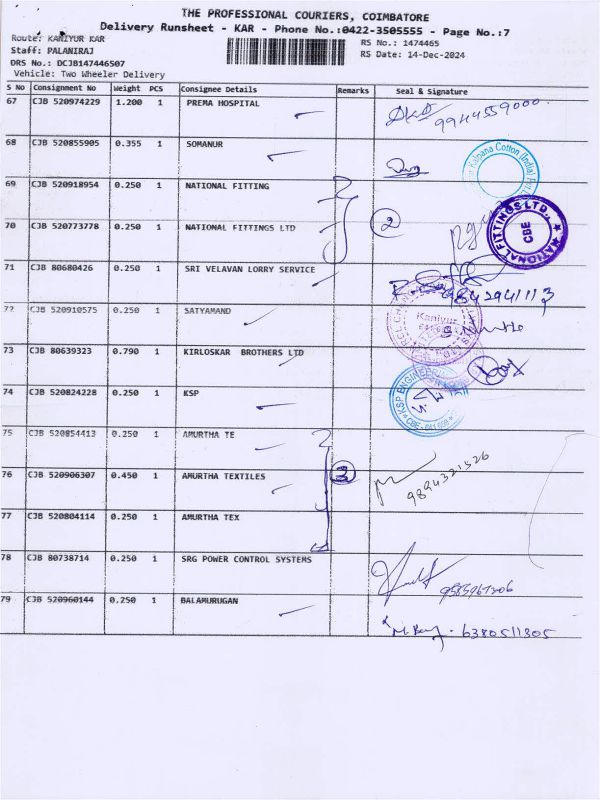 THE PROFESSIONAL COURIERS, COIMBATORE
Delivery Runsheet - KAR - Phone No.:0422-3505555 - Page No.:7
Route: KANIYUR KAR
RS No.: 1474465
Staff: PALANIRAJ
RS Date: 14-Dec-2024
DRS No.: DCJB147446507
Vehicle: Two Wheeler Delivery
S No Consignment No Weight PCS Consignee Details Remarks Seal & Signature
67 CJB 520974229 1.200 1 PREMA HOSPITAL 9944559000
68 CJB 520855905 0.355 1 SOMANUR
69 CJB 520918954 0.250 1 NATIONAL FITTING
2
70 CJB 520773778 0.250 1 NATIONAL FITTINGS LTD
NATIONAL FITTINGS LTD., CBE
71 CJB 80680426 0.250 1 SRI VELAVAN LORRY SERVICE
9842941113
72 CJB 520910575 0.250 1 SATYAMAND
Kaniyur
73 CJB 80639323 0.790 1 KIRLOSKAR BROTHERS LTD
74 CJB 520824228 0.250 1 KSP
KSP ENGINEERING
75 CJB 520854413 0.250 1 AMURTHA TE
76 CJB 520906307 0.450 1 AMURTHA TEXTILES 3 9894321526
77 CJB 520804114 0.250 1 AMURTHA TEX
78 CJB 80738714 0.250 1 SRG POWER CONTROL SYSTEMS
79 CJB 520960144 0.250 1 BALAMURUGAN
6380511305